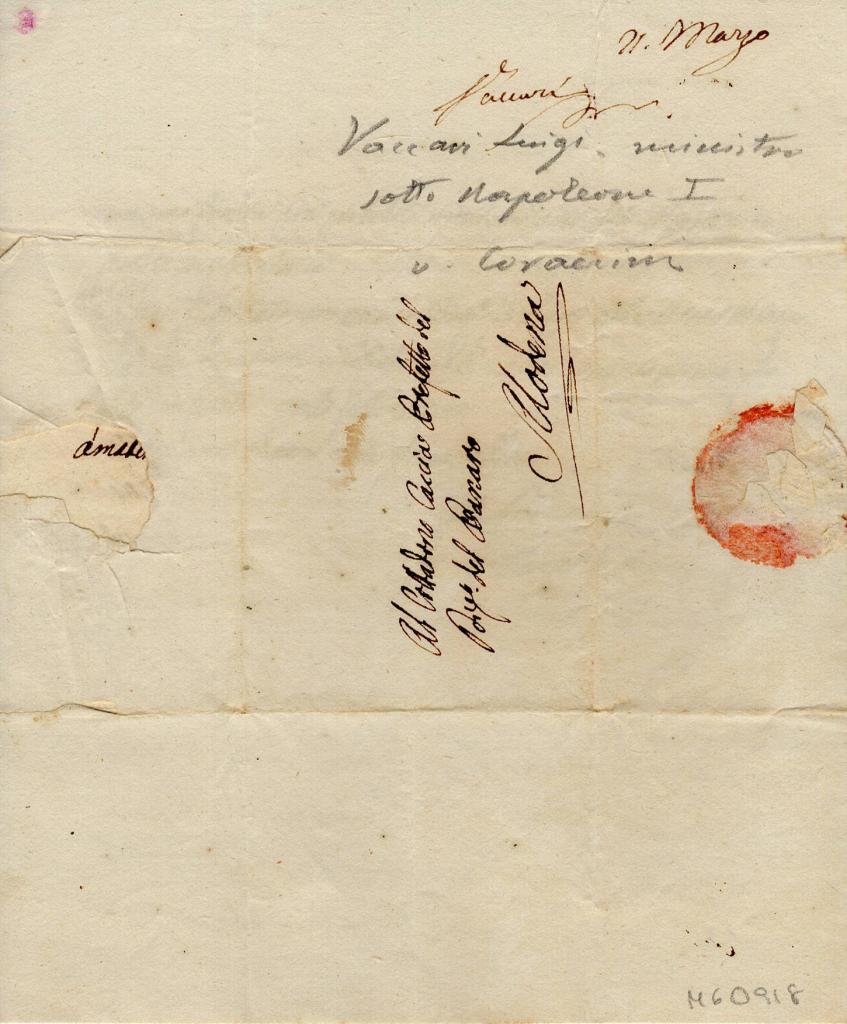 21. Marzo
Vaccari
Vaccari Luigi, ministro
sotto Napoleone I
v. Coraccini
Al Cittadino Caccia Prefetto del
del Panaro
Modena
M60918